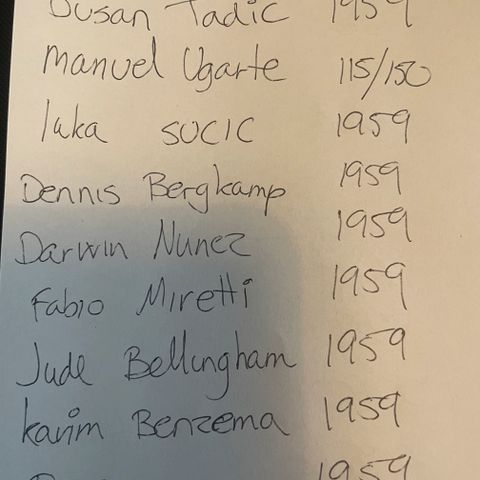 Dusan Tadic 1959
Manuel Ugarte 115/150
luka SUCIC 1959
Dennis Bergkamp 1959
Darwin Nunez 1959
Fabio Miretti 1959
Jude Bellingham 1959
karim Benzema 1959
1959